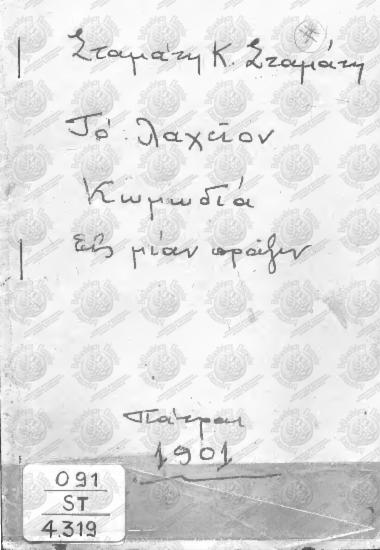 Σταμάτη Κ. Σταμάτη
Τό λαχεῖον
Κωμωδία
Εἰς μίαν πρᾶξιν
Πάτραι
1901
091
ST
4.319